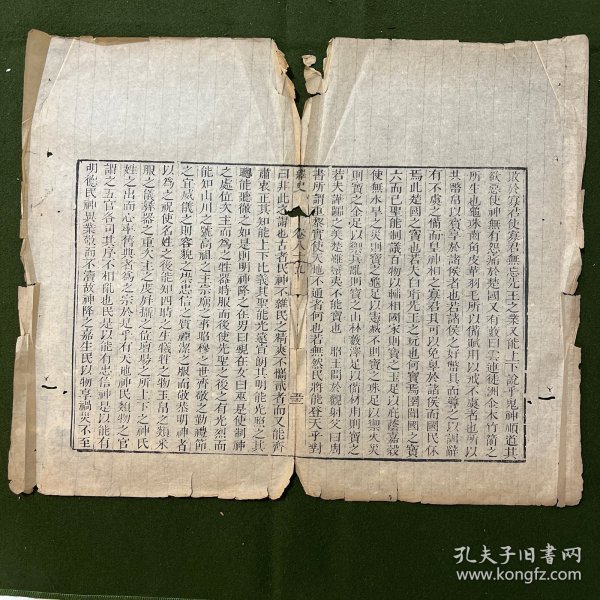 敗於寡君使寡君無忘先王之業又能上下說乎鬼神順道其
欲惡使神無有怨痛於楚國又有藪曰雲連徒洲金木竹箭之
所生也龜珠齒角皮革羽毛所以備賦用以戒不虞者也所以
共幣帛以賓享於諸侯者也若諸侯之好幣具而導之以訓辭
有不虞之備而皇神相之寡君其可以免罪於諸侯而國民保
焉此楚國之寶也若夫白珩先王之玩也何寶焉圉聞國之寶
六而已聖能制議百物以輔相國家則寶之玉足以庇蔭嘉穀
使無水旱之災則寶之龜足以憲臧不則寶之珠足以禦火災
則寶之金足以禦兵亂則寶之山林藪澤足以備財用則寶之
若夫譁囂之美楚雖蠻夷不能寶也 昭王問於觀射父曰周
書所謂重黎實使天地不通者何也若無然民將能登天乎對
繹史 卷八十九
曰非此之謂也古者民神不雜民之精爽不攜貳者而又能齊
肅衷正其知能上下比義其聖能光遠宣朗其明能光照之其
聰能聽徹之如是則明神降之在男曰覡在女曰巫是使制神
之處位次主而為之牲器時服而後使先聖之後之有光烈而
能知山川之號高祖之主宗廟之事昭穆之世齊敬之勤禮節
之宜威儀之則容貌之崇忠信之質禋潔之服而敬恭明神者
以為之祝使名姓之後能知四時之生犧牲之物玉帛之類采
服之儀彝器之量次主之度屏攝之位壇場之所上下之神氏
姓之出而心率舊典者為之宗於是乎有天地神民類物之官
謂之五官各司其序不相亂也民是以能有忠信神是以能有
明德民神異業敬而不瀆故神降之嘉生民以物享禍災不至
孔夫子旧书网
www.kongfz.com